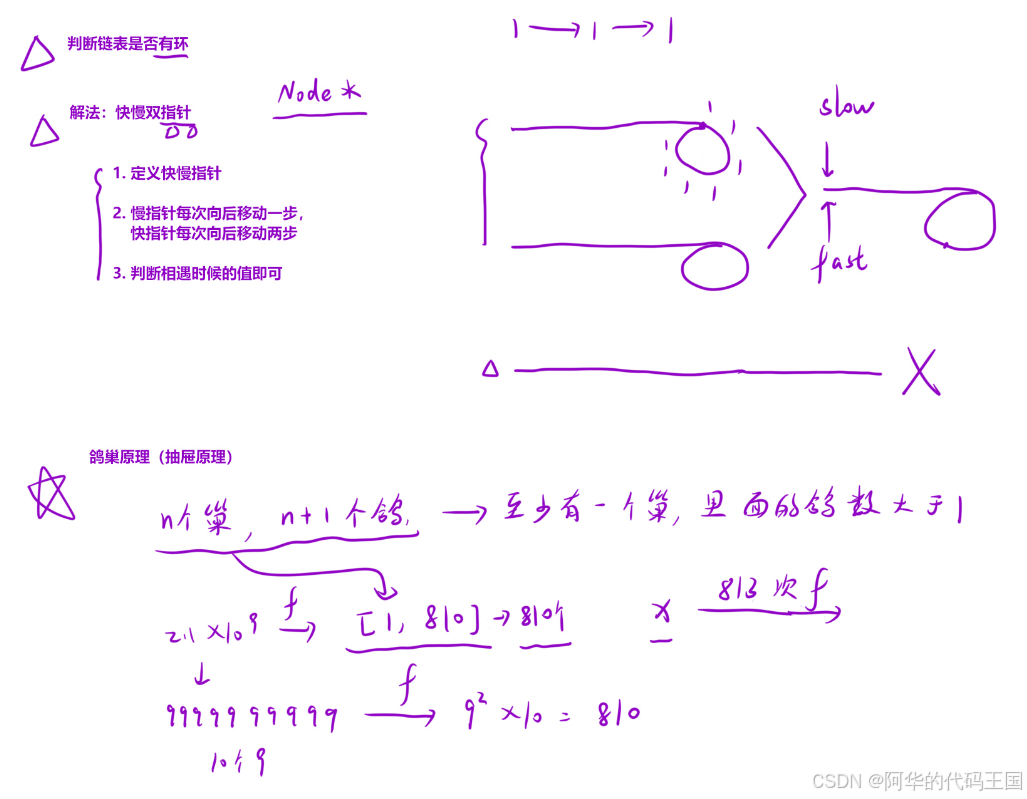 1 → 1 → 1
判断链表是否有环
解法：快慢双指针
Node *
1. 定义快慢指针
2. 慢指针每次向后移动一步，
快指针每次向后移动两步
3. 判断相遇时候的值即可
slow
fast
鸽巢原理（抽屉原理）
n个巢, n+1个鸽, → 至少有一个巢, 里面的鸽数大于1
2.1 × 10⁹ f→ [1, 810] → 810个
x 813次f →
↓
9999999999 f→ 9² × 10 = 810
10个9
CSDN @阿华的代码王国